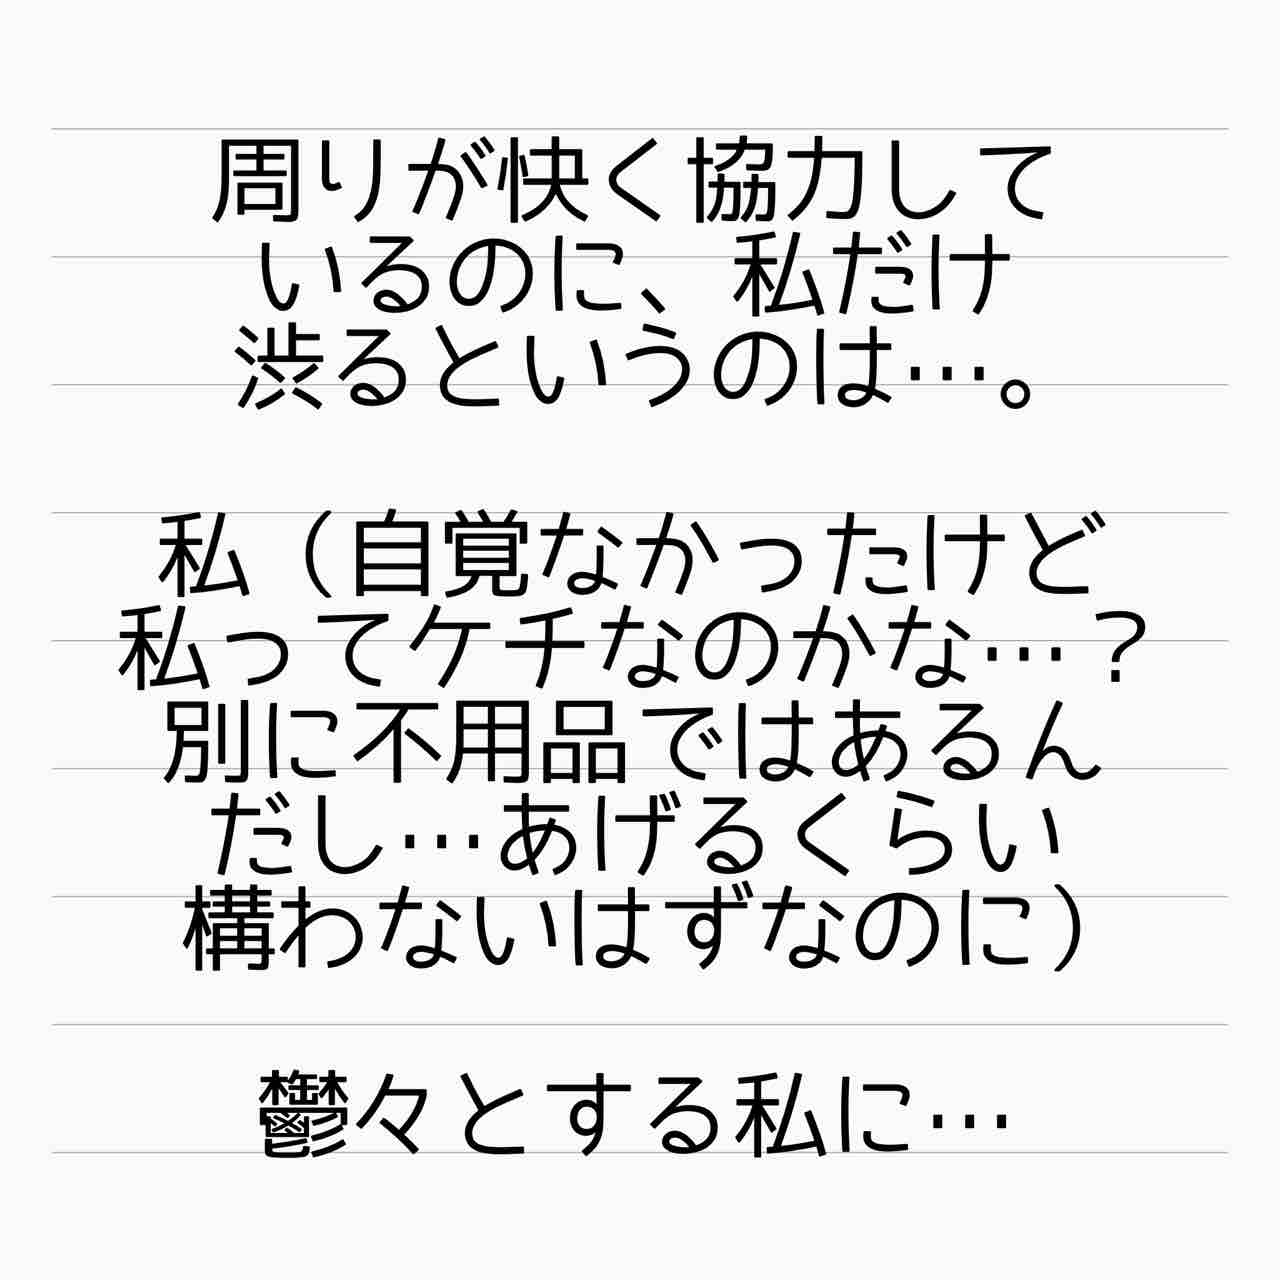 周りが快く協力して
いるのに、私だけ
渋るというのは…。
私（自覚なかったけど
私ってケチなのかな…？
別に不用品ではあるん
だし…あげるくらい
構わないはずなのに）
鬱々とする私に…